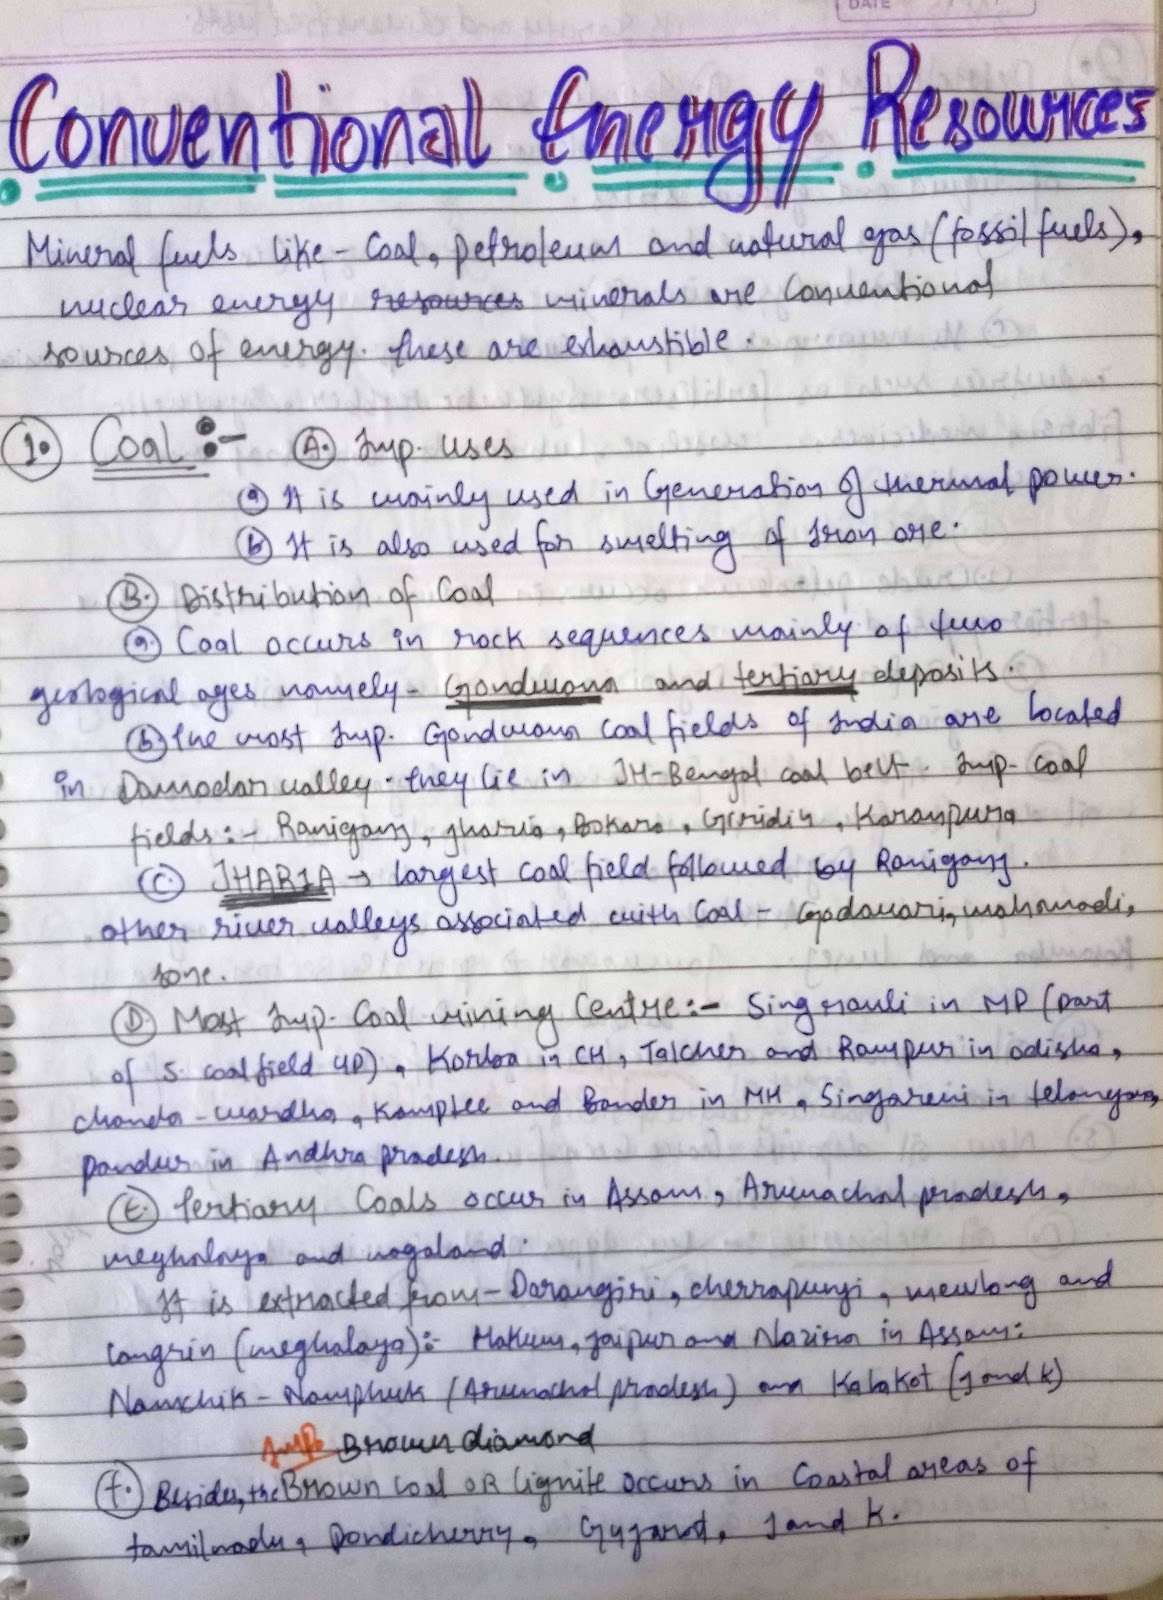 DATE
Conventional Energy Resources
Mineral fuels like - Coal, petroleum and natural gas (fossil fuels),
nuclear energy resources minerals are Conventional
sources of energy. these are exhaustible.
1. Coal :- A. Imp. uses
a It is mainly used in Generation of thermal power.
b It is also used for smelting of Iron ore.
B. Distribution of Coal
a. Coal occurs in rock sequences mainly of two
geological ages namely - Gondwana and tertiary deposits.
b the most Imp. Gondwana coal fields of India are located
in Damodar valley. they lie in JH-Bengal coal belt. Imp. coal
fields :- Raniganj, jharia, Bokaro, Giridih, Karanpura
C. JHARIA → largest coal field followed by Raniganj.
other river valleys associated with Coal - Godavari, mahanadi,
sone.
D. Most Imp. Coal mining Centre :- Singrauli in MP (part
of S. coalfield UP), Korba in CH, Talcher and Rampur in odisha,
chanda-wardha, Kamptee and Bander in MH, Singareni in telangana,
pandur in Andhra pradesh.
E. tertiary Coals occur in Assam, Arunachal pradesh,
meghalaya and nagaland.
It is extracted from - Darangiri, cherrapunji, mewlong and
langrin (meghalaya) :- Makum, jaipur and Nazira in Assam :
Namchik - Namphuk (Arunachal pradesh) and Kalakot (J and K)
Imp. Brown diamond
f. Besides, the Brown coal OR lignite occurs in Coastal areas of
tamilnadu, Pondicherry, Gujarat, J and K.